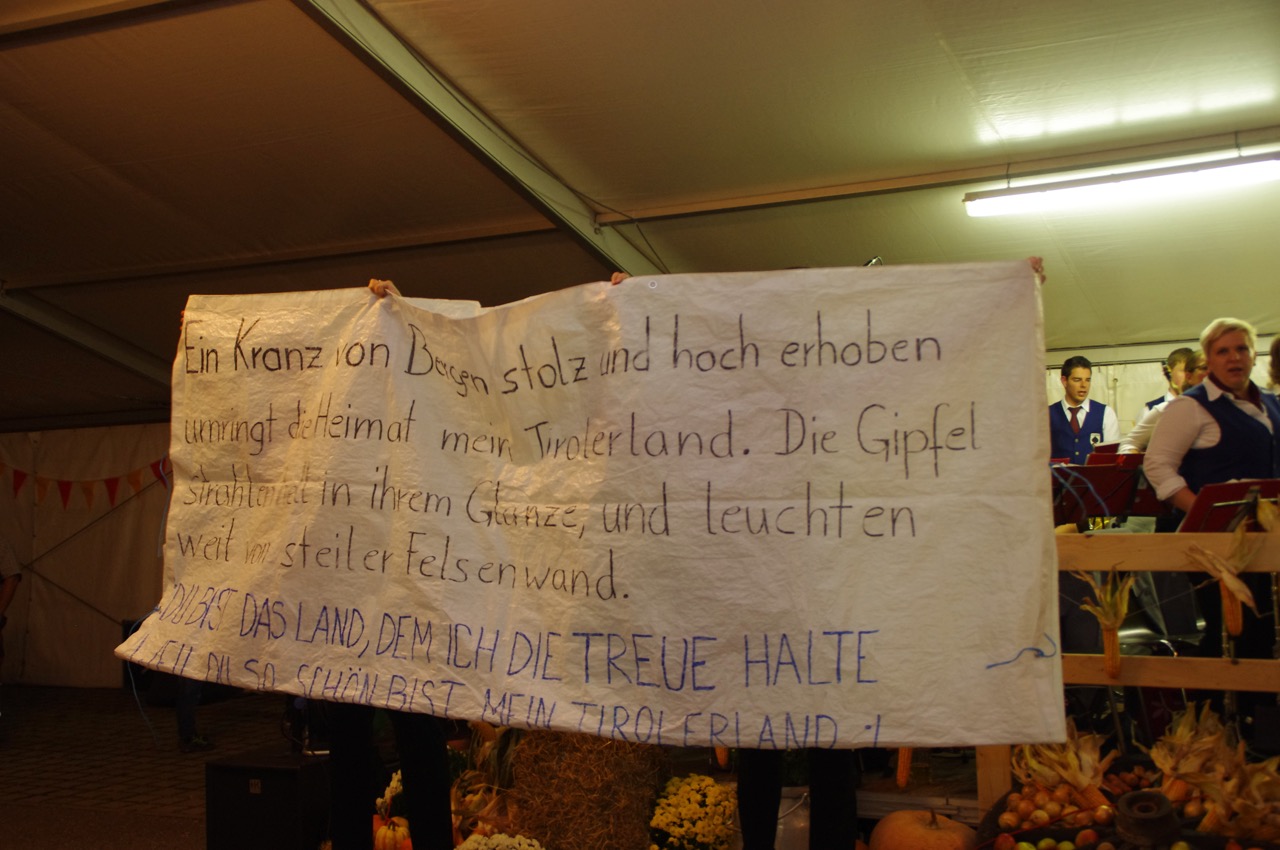 Ein Kranz von Bergen stolz und hoch erhoben
umringt die Heimat mein Tirolerland. Die Gipfel
strahlen in ihrem Glanze, und leuchten
weit von steiler Felsenwand.
DU BIST DAS LAND, DEM ICH DIE TREUE HALTE
WEIL DU SO SCHÖN BIST MEIN TIROLERLAND :|